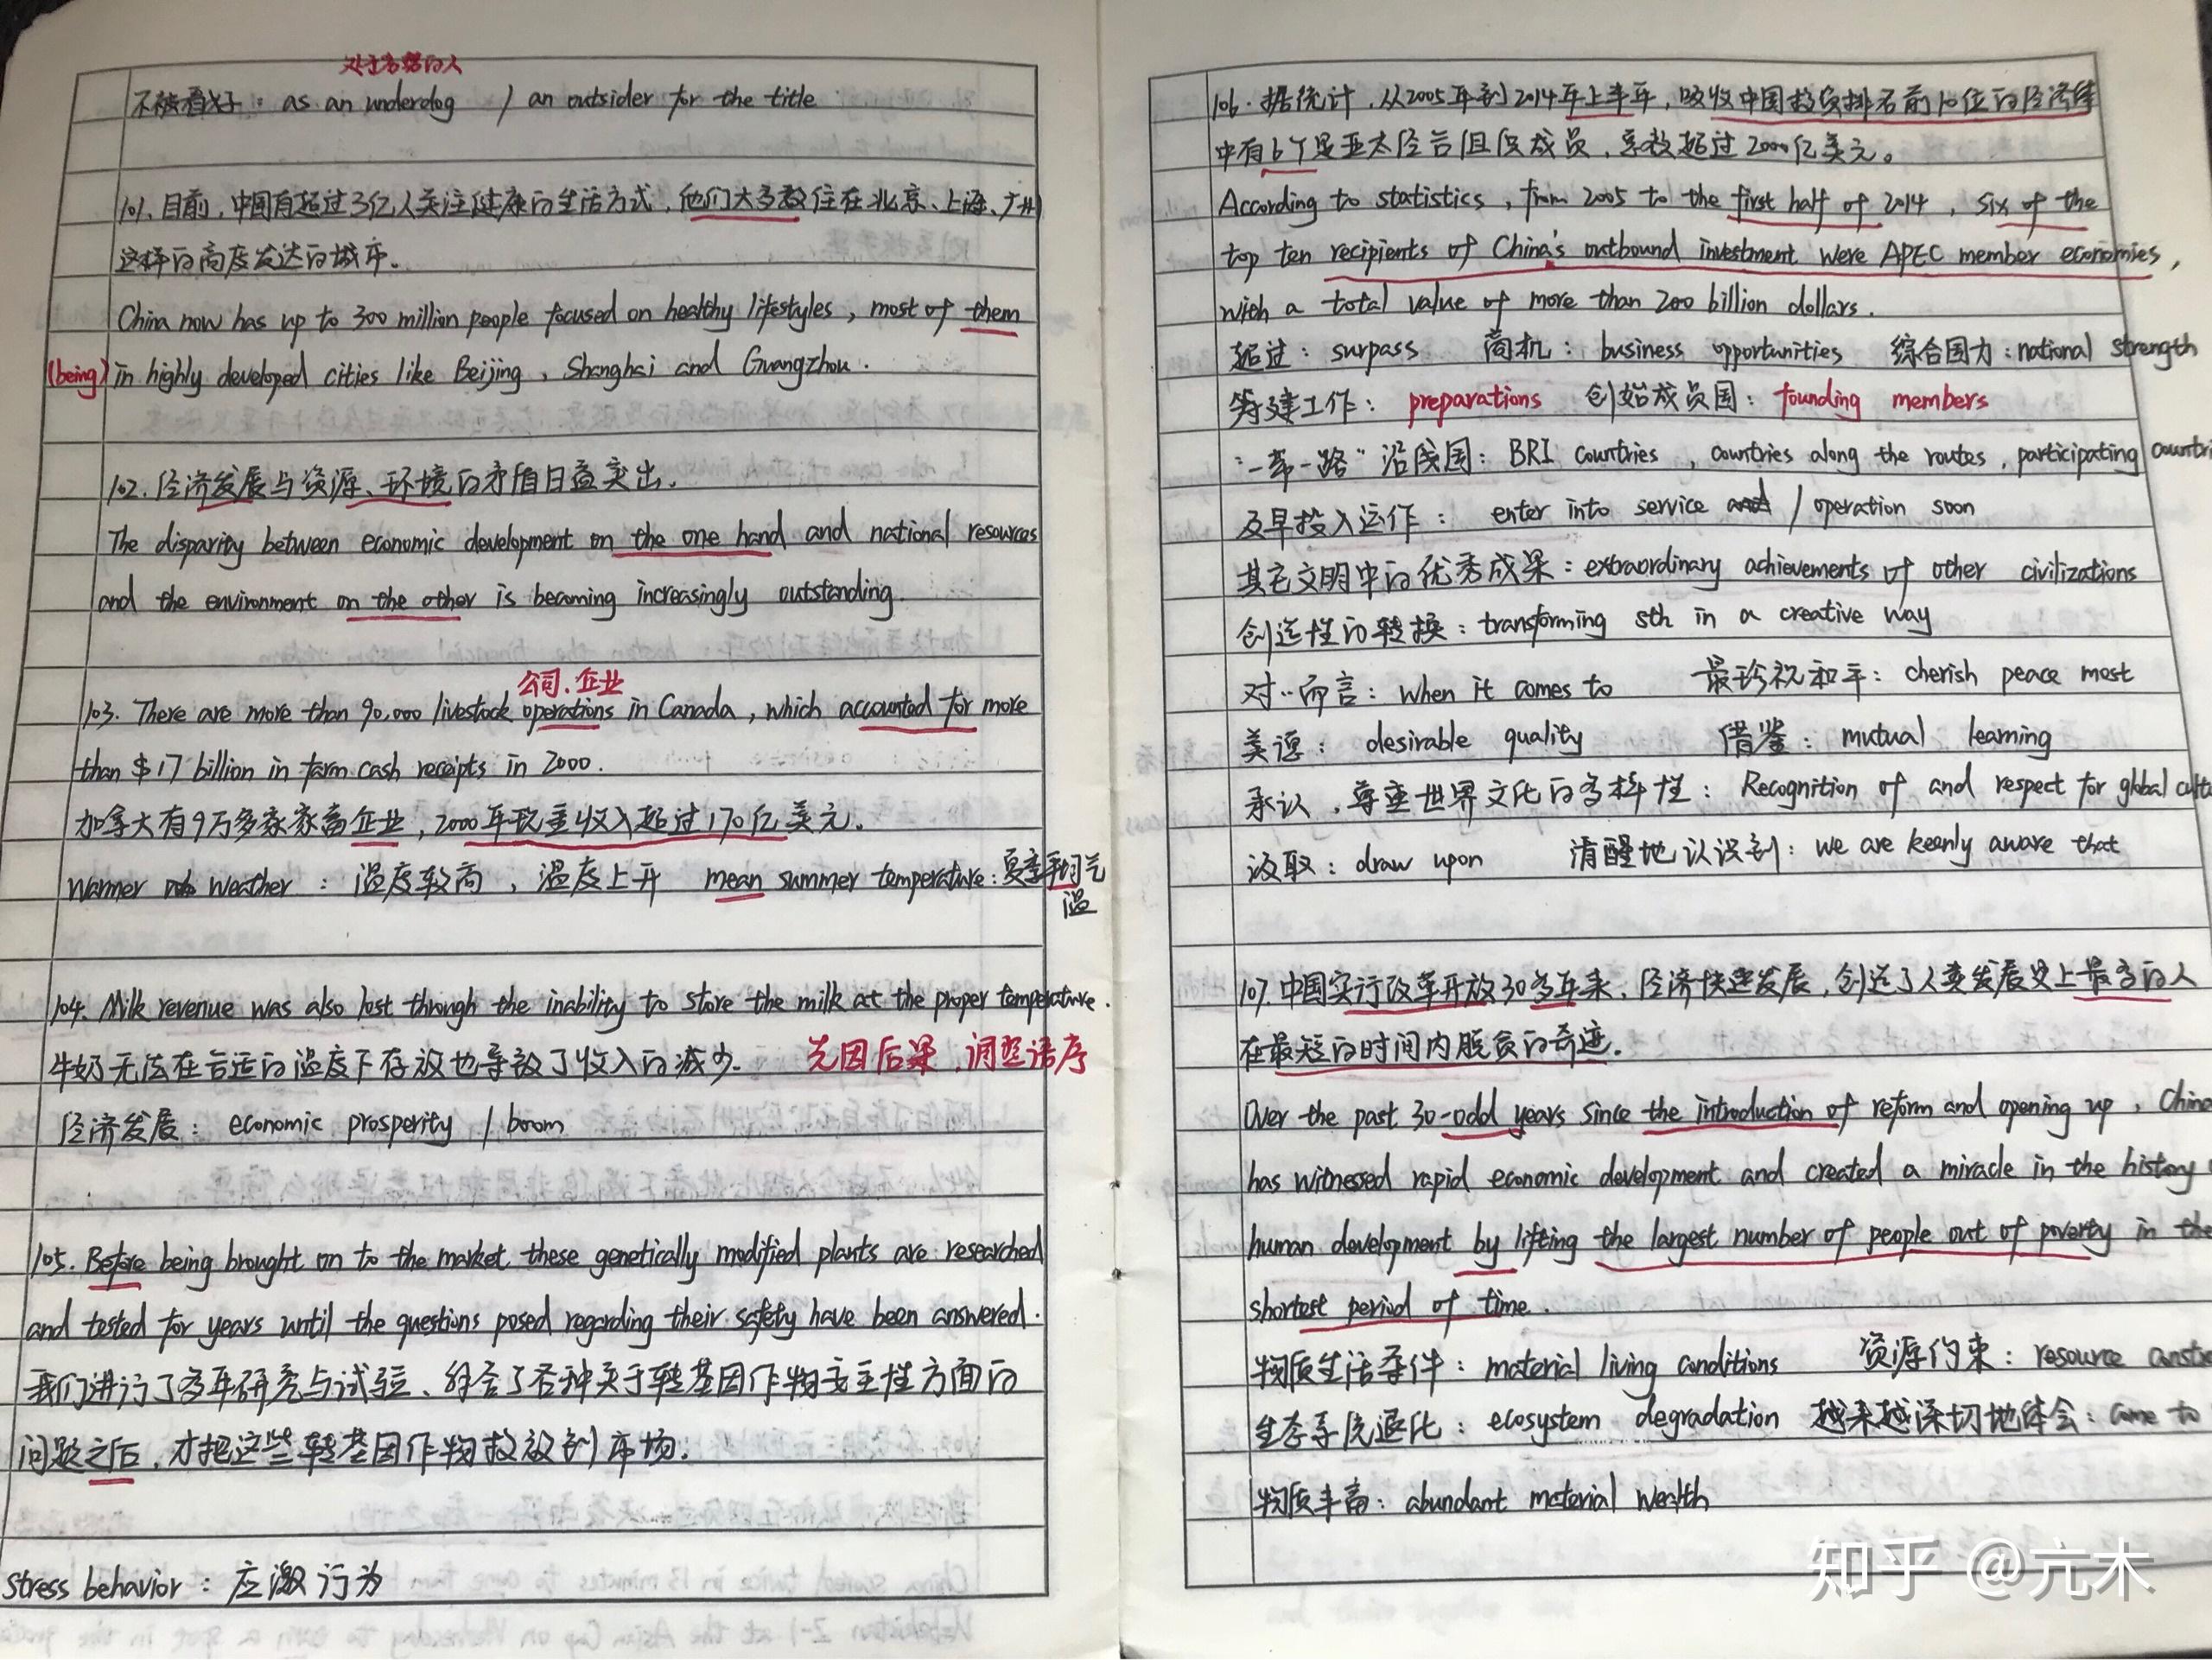 处于劣势的人
不被看好：as an underdog / an outsider for the title
101. 目前，中国有超过3亿人关注健康的生活方式，他们大多数住在北京、上海、广州
这样的高度发达的城市。
China now has up to 300 million people focused on healthy lifestyles, most of them
(being) in highly developed cities like Beijing, Shanghai and Guangzhou.
102. 经济发展与资源、环境的矛盾日益突出.
The disparity between economic development on the one hand and national resources
and the environment on the other is becoming increasingly outstanding.
公司、企业
103. There are more than 90,000 livestock operations in Canada, which accounted for more
than $17 billion in farm cash receipts in 2000.
加拿大有9万多家家畜企业，2000年现金收入超过170亿美元。
Warmer weather：温度较高，温度上升 mean summer temperature：夏季平均气
温
104. Milk revenue was also lost through the inability to store the milk at the proper temperature.
牛奶无法在合适的温度下存放也导致了收入的减少. 先因后果，调整语序
经济发展：economic prosperity / boom
105. Before being brought on to the market, these genetically modified plants are researched
and tested for years until the questions posed regarding their safety have been answered.
我们进行了多年研究与试验、解答了各种关于转基因作物安全性方面的
问题之后，才把这些转基因作物投放到市场.
stress behavior：应激行为
106. 据统计，从2005年到2014年上半年，吸收中国投资排名前10位的经济体
中有6个是亚太经合组织成员，总数超过2000亿美元。
According to statistics, from 2005 to the first half of 2014, six of the
top ten recipients of China's outbound investment were APEC member economies,
with a total value of more than 200 billion dollars.
超过：surpass 商机：business opportunities 综合国力：national strength
筹建工作：preparations 创始成员国：founding members
“一带一路”沿线国：BRI countries, countries along the routes, participating
及早投入运作：enter into service / operation soon
其它文明中的优秀成果：extraordinary achievements of other civilizations
创造性的转换：transforming sth in a creative way
对…而言：when it comes to 最珍视和平：cherish peace most
美德：desirable quality 借鉴：mutual learning
承认，尊重世界文化的多样性：Recognition of and respect for global
汲取：draw upon 清醒地认识到：we are keenly aware that
107. 中国实行改革开放30多年来，经济快速发展，创造了人类发展史上最多的人
在最短的时间内脱贫的奇迹.
Over the past 30-odd years since the introduction of reform and opening up, China
has witnessed rapid economic development and created a miracle in the history
human development by lifting the largest number of people out of poverty in the
shortest period of time.
物质生活条件：material living conditions 资源约束：resource
生态系统退化：ecosystem degradation 越来越深切地体会：come to
物质丰富：abundant material wealth
知乎 @亢木